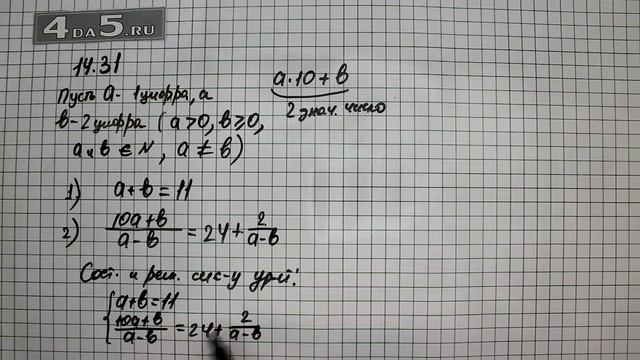 4DA5.RU
14.31
Пусть a - 1 цифра, а
b - 2 цифра (a>0, b≥0,
a и b ∈ N, a ≠ b)
a·10+b
2 знач. число
1) a+b=11
2) \frac{10a+b}{a-b} = 24 + \frac{2}{a-b}
Сост. и реш. сис-у ур-й:
{ a+b=11
\frac{10a+b}{a-b} = 24 + \frac{2}{a-b}